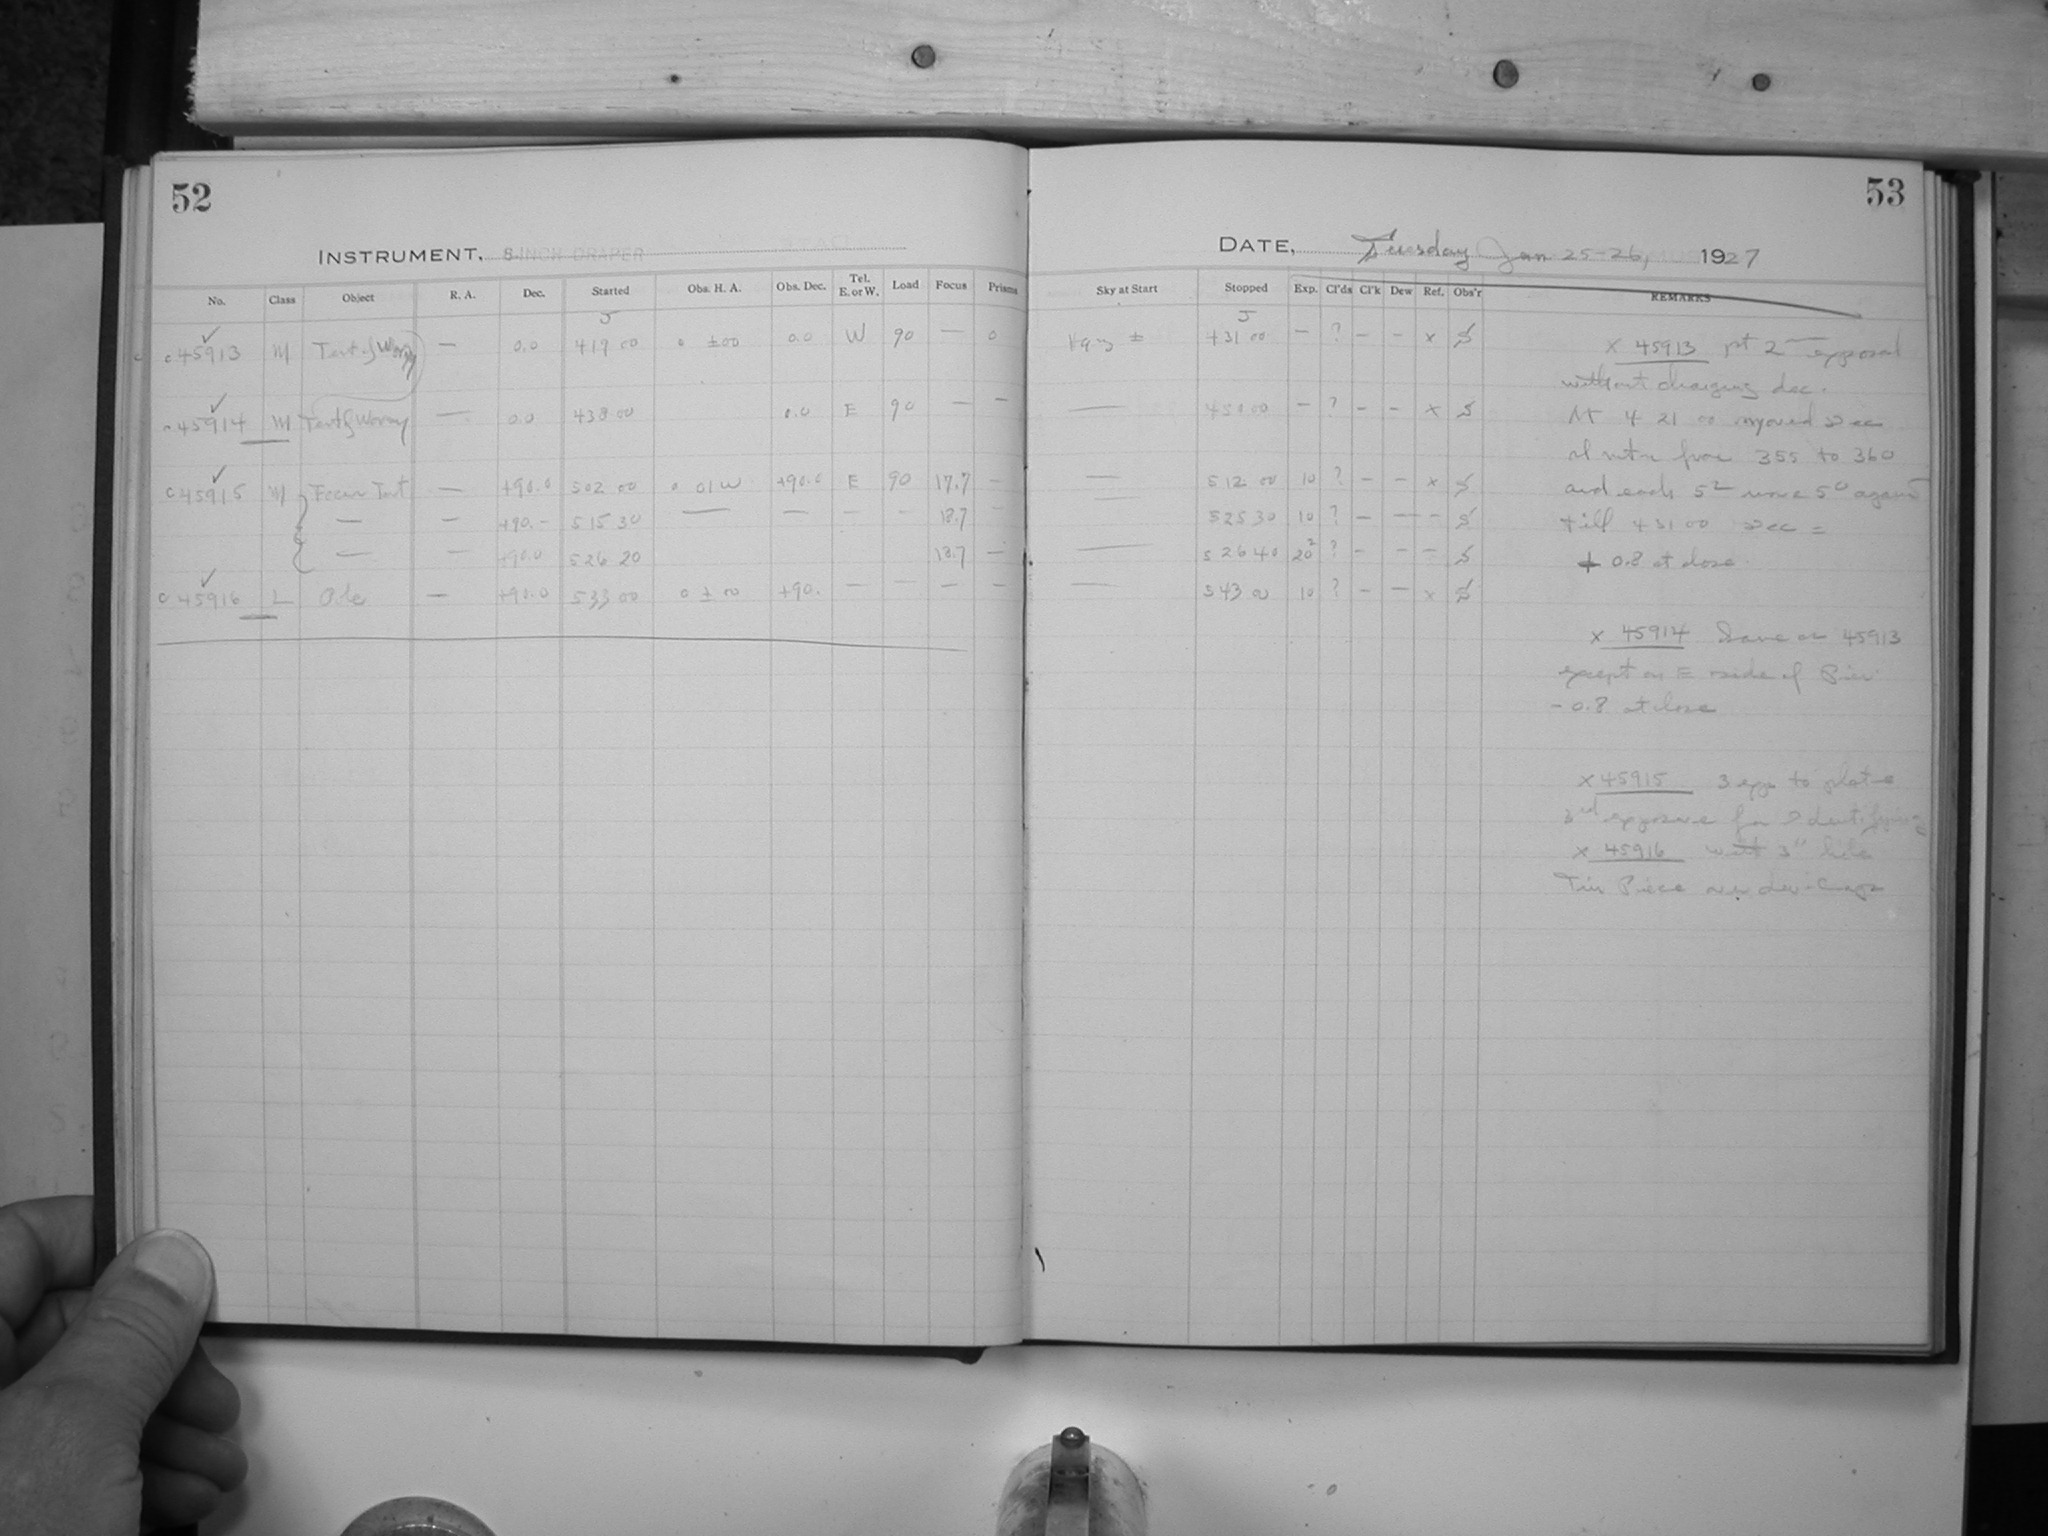 52
INSTRUMENT, 8-INCH DRAPER
No. Class Object R. A. Dec. Started Obs. H. A. Obs. Dec. Tel. E. or W. Load Focus Prisms
c 45913 M Test of Worm — 0.0 419 00 0 ±00 0.0 W 90 — 0
c 45914 M Test of Worm — 0.0 438 00 0.0 E 90 — —
c 45915 M Focus Test — +90.0 502 00 0 01 W +90.0 E 90 17.7 —
— — +90.- 515 30 — — — — 18.7 —
— — +90.0 526 20 18.7 —
c 45916 L Pole — +90.0 533 00 0 ± 00 +90. — — — —
53
DATE, Tuesday Jan 25-26, 1927
Sky at Start Stopped Exp. Cl'ds Cl'k Dew Ref. Obs'r REMARKS
Hazy ± 431 00 — ? — — x S
— 450 00 — ? — — x S
— 512 00 10 ? — — x S
525 30 10 ? — — — S
— 526 40 20 ? — — — S
— 543 00 10 ? — — x S
x 45913
without changing dec.
At 4 21 00 moved Dec
from 355 to 360
and each move again
till 4 31 00 Dec =
+ 0.8 at close
x 45914 Same as 45913
except on E side of Pier
- 0.8 at close
x 45915 3 exps to plate
3rd exposure for Identifying
x 45916 with 3"
Tin Piece over dew-cap